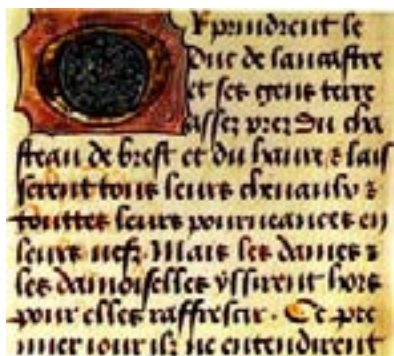 OR prindrent le
Duc de lancastre
et ses gens terre
assez prez du cha
steau de brest et du haure & lais
serent tous leurs cheuaulx &
touttes leurs pourueances en
leurs nefz. Mais les dames &
les damoiselles yssirent hors
pour elles raffrescir. Ce pre
mier iour ilz ne entendirent